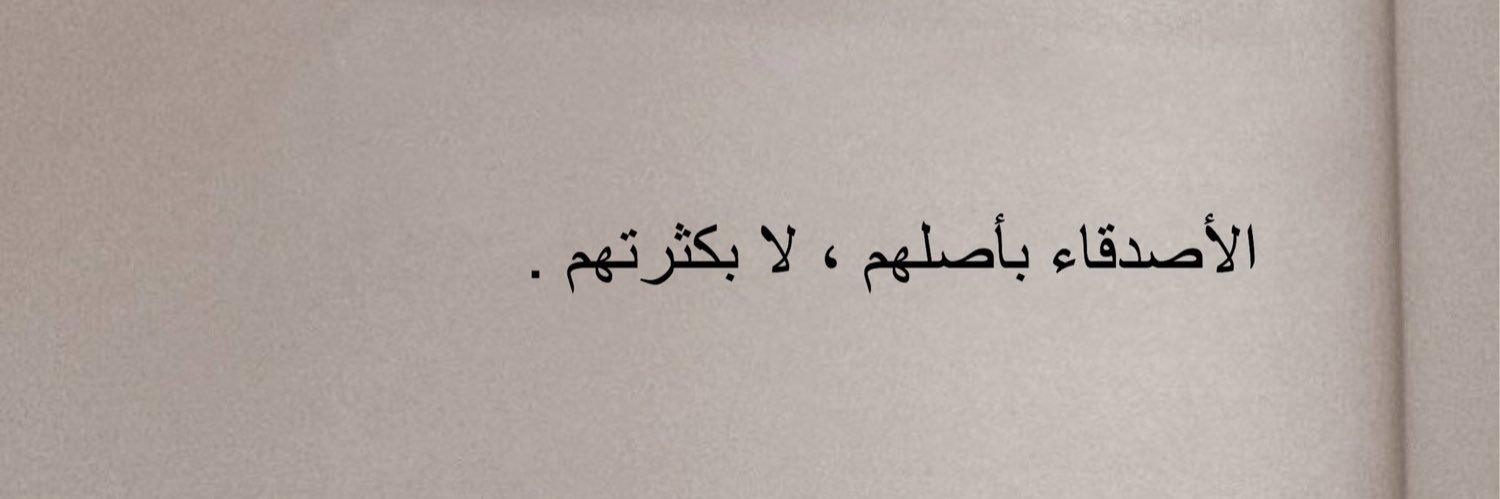 الأصدقاء بأصلهم ، لا بكثرتهم .